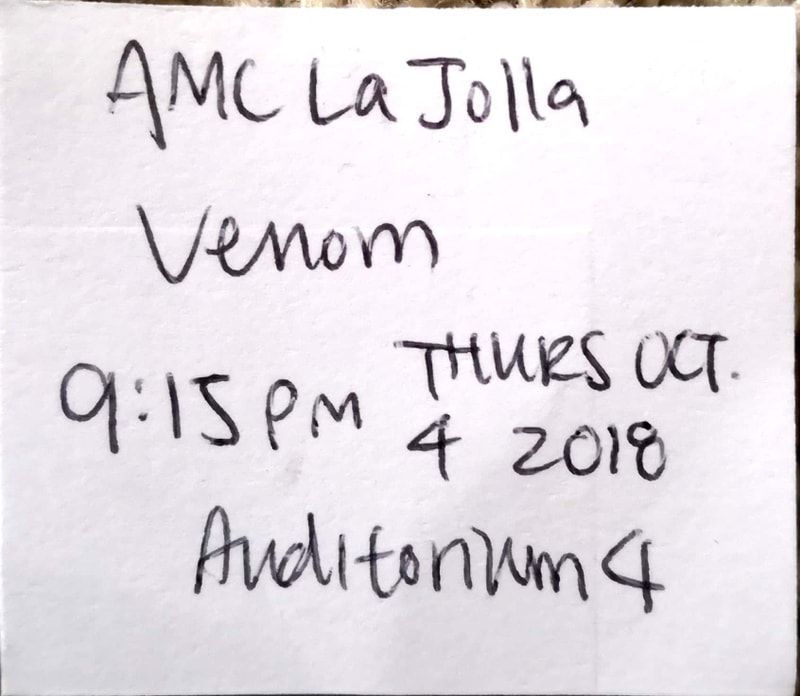 AMC La Jolla
Venom
9:15 PM THURS OCT.
4 2018
Auditorium 4